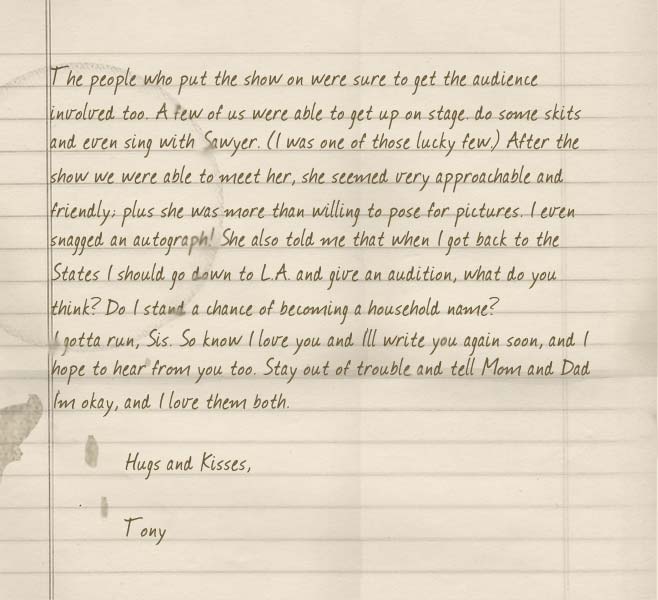 The people who put the show on were sure to get the audience
involved too. A few of us were able to get up on stage. do some skits
and even sing with Sawyer. (I was one of those lucky few.) After the
show we were able to meet her, she seemed very approachable and
friendly; plus she was more than willing to pose for pictures. I even
snagged an autograph! She also told me that when I got back to the
States I should go down to L.A. and give an audition, what do you
think? Do I stand a chance of becoming a household name?
I gotta run, Sis. So know I love you and I'll write you again soon, and I
hope to hear from you too. Stay out of trouble and tell Mom and Dad
I'm okay, and I love them both.
Hugs and Kisses,
Tony